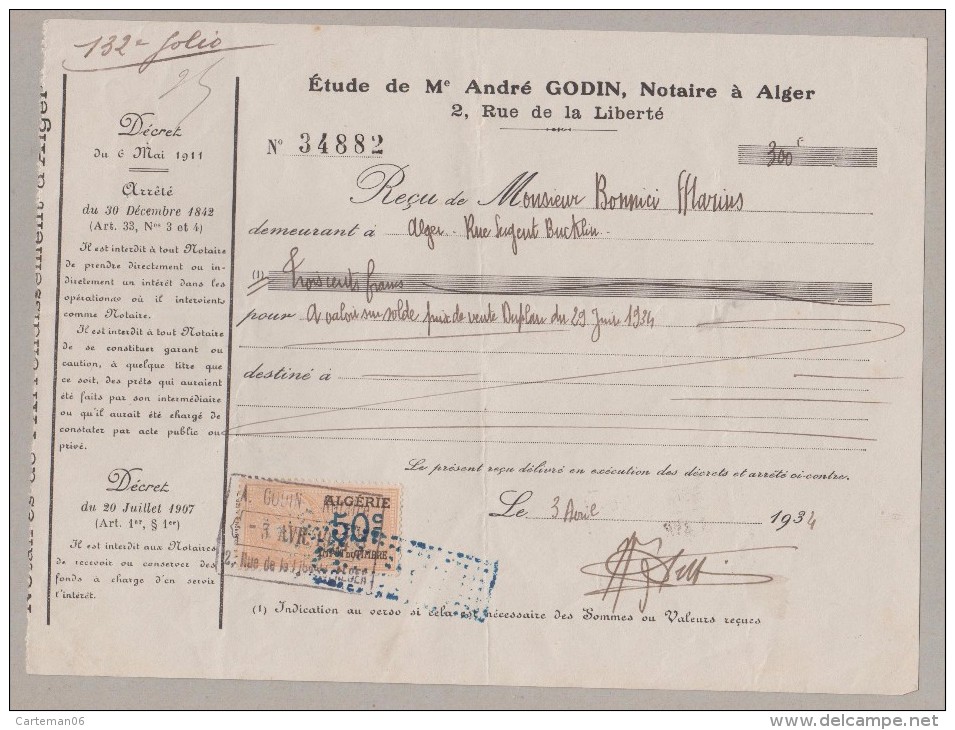 132e folio
25
Étude de Me André GODIN, Notaire à Alger
2, Rue de la Liberté
N° 34882
300 f
Reçu de Monsieur Bonnici Marius
demeurant à Alger Rue Sergent
(1) Trois cents francs
pour A valoir sur solde prix de vente du 29 Juin 1934
destiné à
Le présent reçu délivré en exécution des décrets et arrêté ci-contre.
Le 3 Avril 1934
(1) Indication au verso si cela est nécessaire des Sommes ou Valeurs reçues
Décret
du 6 Mai 1911
Arrêté
du 30 Décembre 1842
(Art. 33, Nos 3 et 4)
Il est interdit à tout Notaire
de prendre directement ou in-
directement un intérêt dans les
opérations où il intervient
comme Notaire.
Il est interdit à tout Notaire
de se constituer garant ou
caution, à quelque titre que
ce soit, des prêts qui auraient
été faits par son intermédiaire
ou qu'il aurait été chargé de
constater par acte public ou
privé.
Décret
du 20 Juillet 1907
(Art. 1er, § 1er)
Il est interdit aux Notaires
de recevoir ou conserver des
fonds à charge d'en servir
l'intérêt.
Notaires de l'Arrondissement d'Alger
A. GODIN
ALGÉRIE
50c
- 3 AVR
TIMBRE
2, Rue de la Liberté
ALGER
Carteman06
delcampe.net